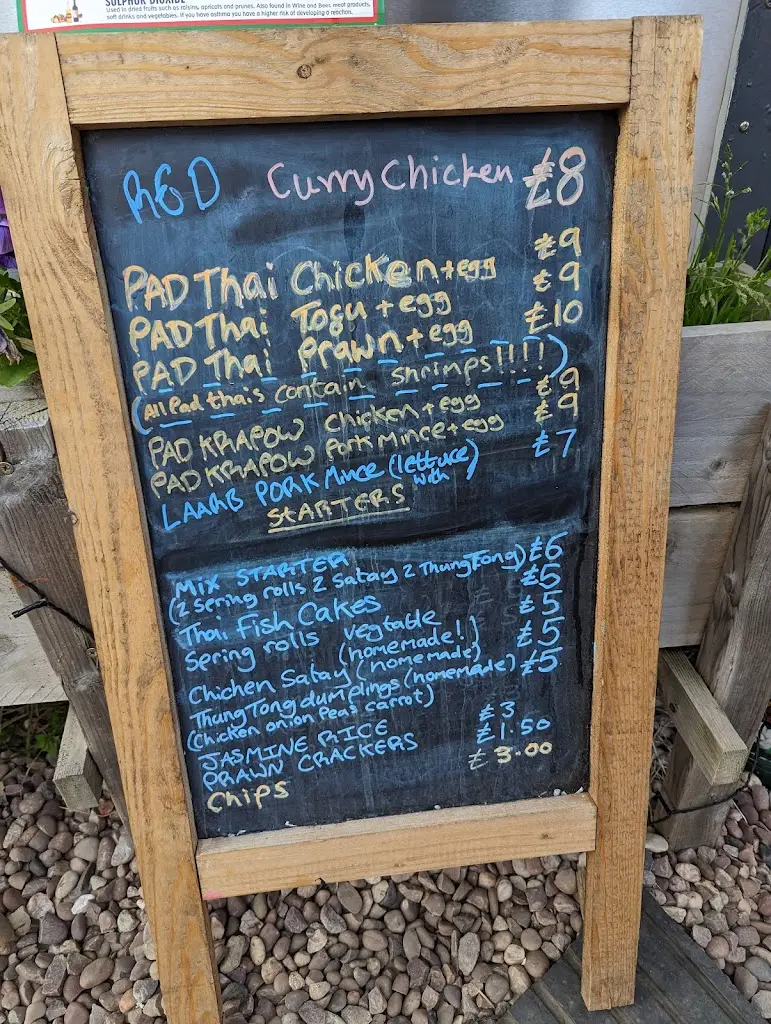 SULPHUR DIOXIDE
Used in dried fruits such as raisins, apricots and prunes. Also found in Wine and Beer, meat products,
soft drinks and vegetables. If you have asthma you have a higher risk of developing a reaction.
RED Curry Chicken £8
PAD Thai Chicken + egg £9
PAD Thai Tofu + egg £9
PAD Thai Prawn + egg £10
(All Pad thais contain shrimps!!!!)
PAD KRAPOW chicken + egg £9
PAD KRAPOW Pork Mince + egg £9
LAARB PORK Mince (with lettuce) £7
STARTERS
MIX STARTER £6
(2 Spring rolls 2 Satay 2 ThungTong)
Thai Fish Cakes £5
Spring rolls vegtable (homemade!) £5
Chicken Satay (homemade) £5
ThungTong dumplings (homemade) £5
(Chicken onion Peas carrot)
JASMINE RICE £3
PRAWN CRACKERS £1.50
Chips £3.00